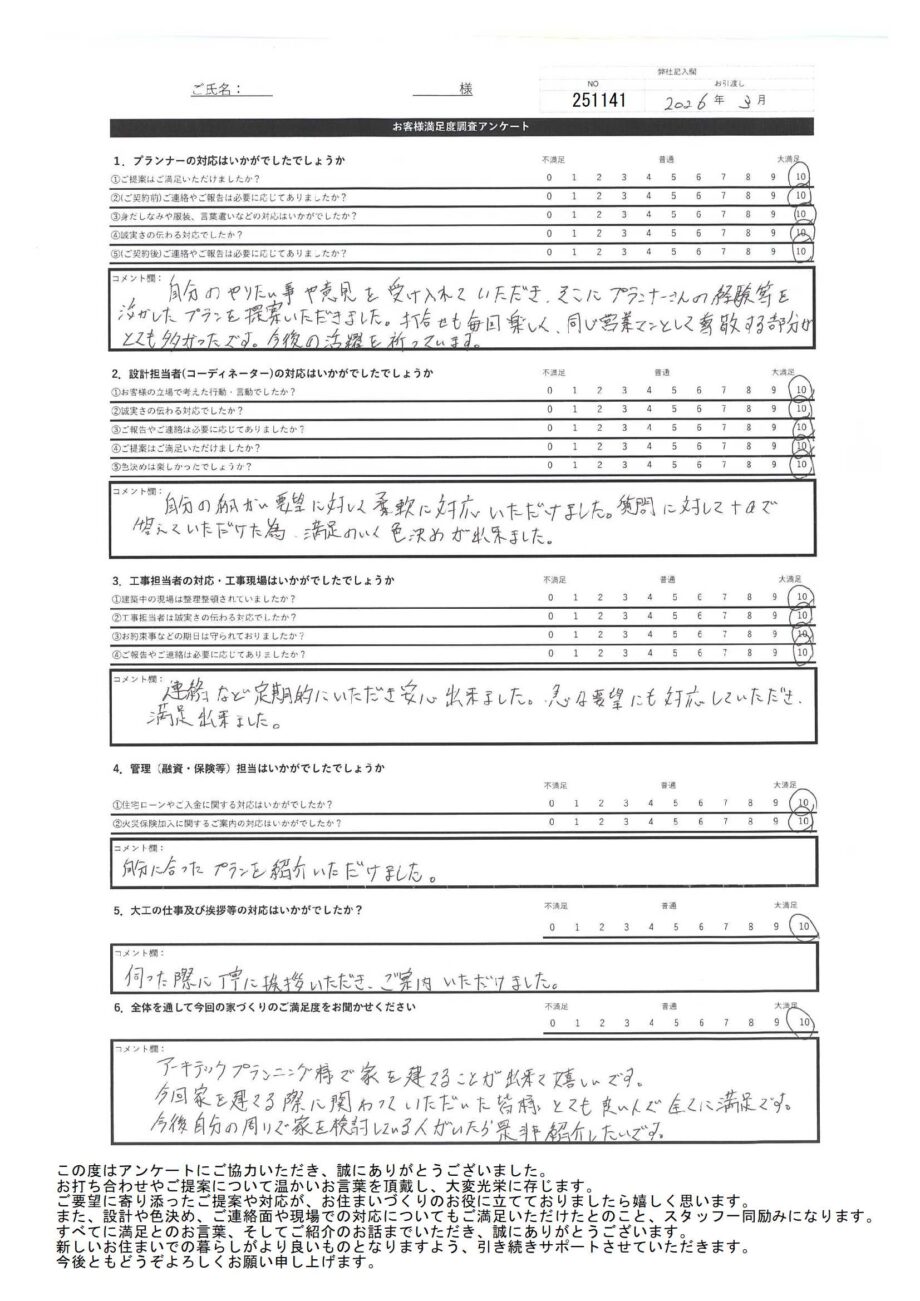 弊社記入欄
ご氏名： 様
NO お引渡し
251141 2026年 3月
お客様満足度調査アンケート
1．プランナーの対応はいかがでしたでしょうか 不満足 普通 大満足
①ご提案はご満足いただけましたか？ 0 1 2 3 4 5 6 7 8 9 10
②(ご契約前)ご連絡やご報告は必要に応じてありましたか？ 0 1 2 3 4 5 6 7 8 9 10
③身だしなみや服装、言葉遣いなどの対応はいかがでしたか？ 0 1 2 3 4 5 6 7 8 9 10
④誠実さの伝わる対応でしたか？ 0 1 2 3 4 5 6 7 8 9 10
⑤(ご契約後)ご連絡やご報告は必要に応じてありましたか？ 0 1 2 3 4 5 6 7 8 9 10
コメント欄：
自分のやりたい事や意見を受け入れていただき、そこにプランナーさんの経験等を
活かしたプランを提案いただきました。打合せも毎回楽しく、同じ営業マンとして尊敬する部分が
とても多かったです。今後の活躍を祈っています。
2．設計担当者(コーディネーター)の対応はいかがでしたでしょうか 不満足 普通 大満足
①お客様の立場で考えた行動・言動でしたか？ 0 1 2 3 4 5 6 7 8 9 10
②誠実さの伝わる対応でしたか？ 0 1 2 3 4 5 6 7 8 9 10
③ご報告やご連絡は必要に応じてありましたか？ 0 1 2 3 4 5 6 7 8 9 10
④ご提案はご満足いただけましたか？ 0 1 2 3 4 5 6 7 8 9 10
⑤色決めは楽しかったでしょうか？ 0 1 2 3 4 5 6 7 8 9 10
コメント欄：
自分の細かい要望に対して柔軟に対応いただけました。質問に対して+αで
答えていただけた為、満足のいく色決めが出来ました。
3．工事担当者の対応・工事現場はいかがでしたでしょうか 不満足 普通 大満足
①建築中の現場は整理整頓されていましたか？ 0 1 2 3 4 5 6 7 8 9 10
②工事担当者は誠実さの伝わる対応でしたか？ 0 1 2 3 4 5 6 7 8 9 10
③お約束事などの期日は守られておりましたか？ 0 1 2 3 4 5 6 7 8 9 10
④ご報告やご連絡は必要に応じてありましたか？ 0 1 2 3 4 5 6 7 8 9 10
コメント欄：
連絡など定期的にいただき安心出来ました。急な要望にも対応していただき、
満足出来ました。
4．管理（融資・保険等）担当はいかがでしたでしょうか
不満足 普通 大満足
①住宅ローンやご入金に関する対応はいかがでしたか？ 0 1 2 3 4 5 6 7 8 9 10
②火災保険加入に関するご案内の対応はいかがでしたか？ 0 1 2 3 4 5 6 7 8 9 10
コメント欄：
自分に合ったプランを紹介いただけました。
5．大工の仕事及び挨拶等の対応はいかがでしたか？ 不満足 普通 大満足
0 1 2 3 4 5 6 7 8 9 10
コメント欄：
伺った際に丁寧に挨拶いただき、ご案内いただけました。
6．全体を通して今回の家づくりのご満足度をお聞かせください 不満足 普通 大満足
0 1 2 3 4 5 6 7 8 9 10
コメント欄：
アーキテックプランニング様で家を建てることが出来て嬉しいです。
今回家を建てる際に関わっていただいた皆様、とても良い人で全てに満足です。
今後自分の周りで家を検討している人がいたら是非紹介したいです。
この度はアンケートにご協力いただき、誠にありがとうございました。
お打ち合わせやご提案について温かいお言葉を頂戴し、大変光栄に存じます。
ご要望に寄り添ったご提案や対応が、お住まいづくりのお役に立てておりましたら嬉しく思います。
また、設計や色決め、ご連絡面や現場での対応についてもご満足いただけたとのこと、スタッフ一同励みになります。
すべてに満足とのお言葉、そしてご紹介のお話までいただき、誠にありがとうございます。
新しいお住まいでの暮らしがより良いものとなりますよう、引き続きサポートさせていただきます。
今後ともどうぞよろしくお願い申し上げます。